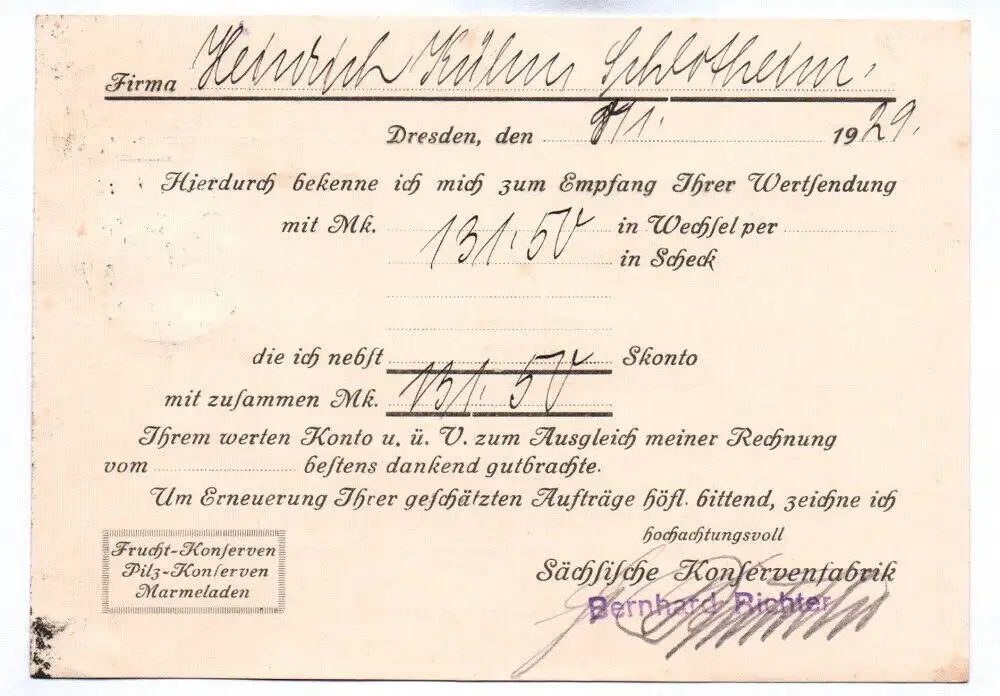 Firma Heinrich Kühn, Schlotheim.
Dresden, den 8/1. 1929.
Hierdurch bekenne ich mich zum Empfang Ihrer Wertsendung
mit Mk. 131.50 in Wechsel per
in Scheck
die ich nebst Skonto
mit zusammen Mk. 131.50
Ihrem werten Konto u. ü. V. zum Ausgleich meiner Rechnung
vom bestens dankend gutbrachte.
Um Erneuerung Ihrer geschätzten Aufträge höfl. bittend, zeichne ich
hochachtungsvoll
Sächsische Konservenfabrik
Bernhard Richter
Frucht-Konserven
Pilz-Konserven
Marmeladen